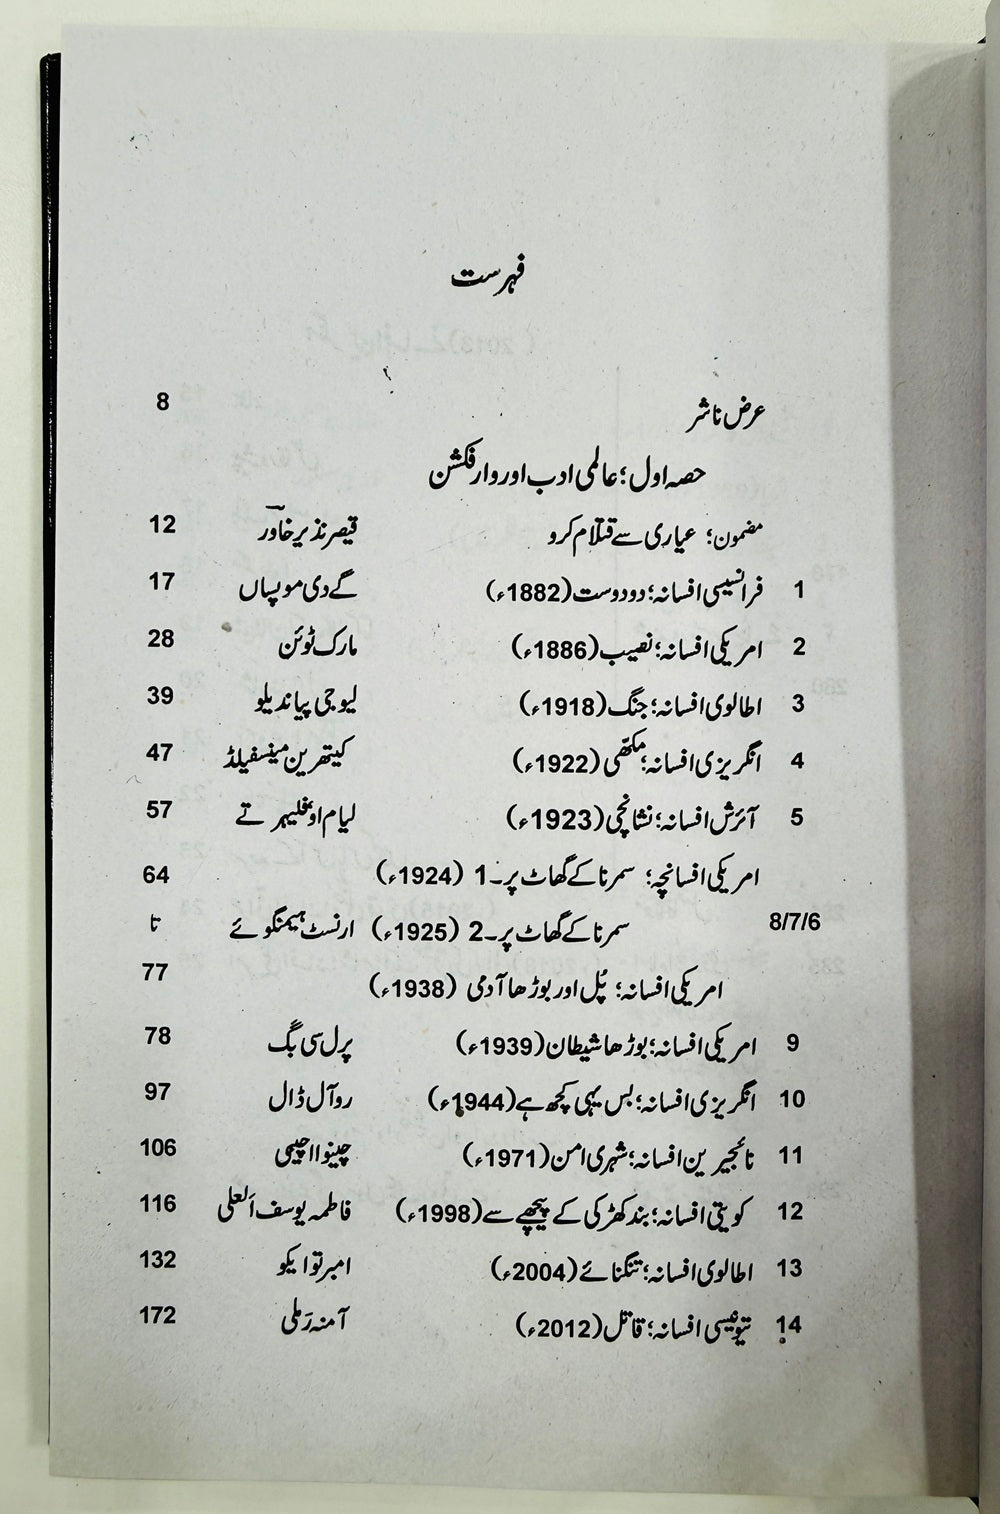 فہرست
عرض ناشر 8
حصہ اول؛ عالمی ادب اور وار فکشن
مضمون؛ عیاری سے قتلام کرو قیصر نذیر خاورؔ 12
1 فرانسیسی افسانہ؛ دو دوست (1882ء) گے دی موپساں 17
2 امریکی افسانہ؛ نصیب (1886ء) مارک ٹوئن 28
3 اطالوی افسانہ؛ جنگ (1918ء) لیوجی پیاندیلو 39
4 انگریزی افسانہ؛ مکھّی (1922ء) کیتھرین مینسفیلڈ 47
5 آئرش افسانہ؛ نشانچی (1923ء) لیام اوفلیہر تے 57
امریکی افسانچہ؛ سمرنا کے گھاٹ پر۔1 (1924ء) 64
8/7/6 سمرنا کے گھاٹ پر۔2 (1925ء) ارنسٹ ہیمنگوئے تا
امریکی افسانہ؛ پُل اور بوڑھا آدمی (1938ء) 77
9 امریکی افسانہ؛ بوڑھا شیطان (1939ء) پرل سی بَگ 78
10 انگریزی افسانہ؛ بس یہی کچھ ہے (1944ء) روآل ڈال 97
11 نائجیرین افسانہ؛ شہری امن (1971ء) چینوا اچیبی 106
12 کویتی افسانہ؛ بند کھڑکی کے پیچھے سے (1998ء) فاطمہ یوسف العلی 116
13 اطالوی افسانہ؛ تنگنائے (2004ء) امبرتو ایکو 132
14 تیونیسی افسانہ؛ قاتل (2012ء) آمنہ رَملی 172